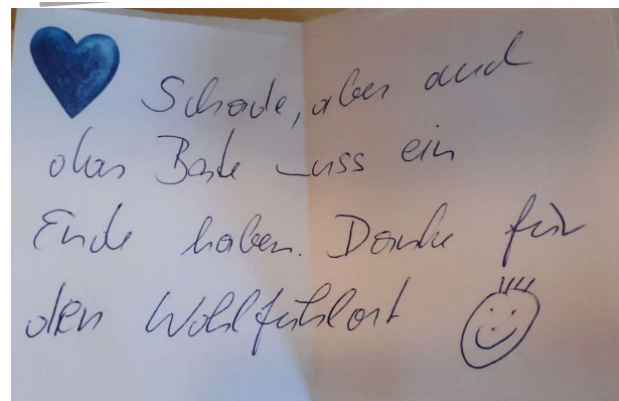 Schade, aber auch
das Beste muss ein
Ende haben. Danke für
den Wohlfühlort